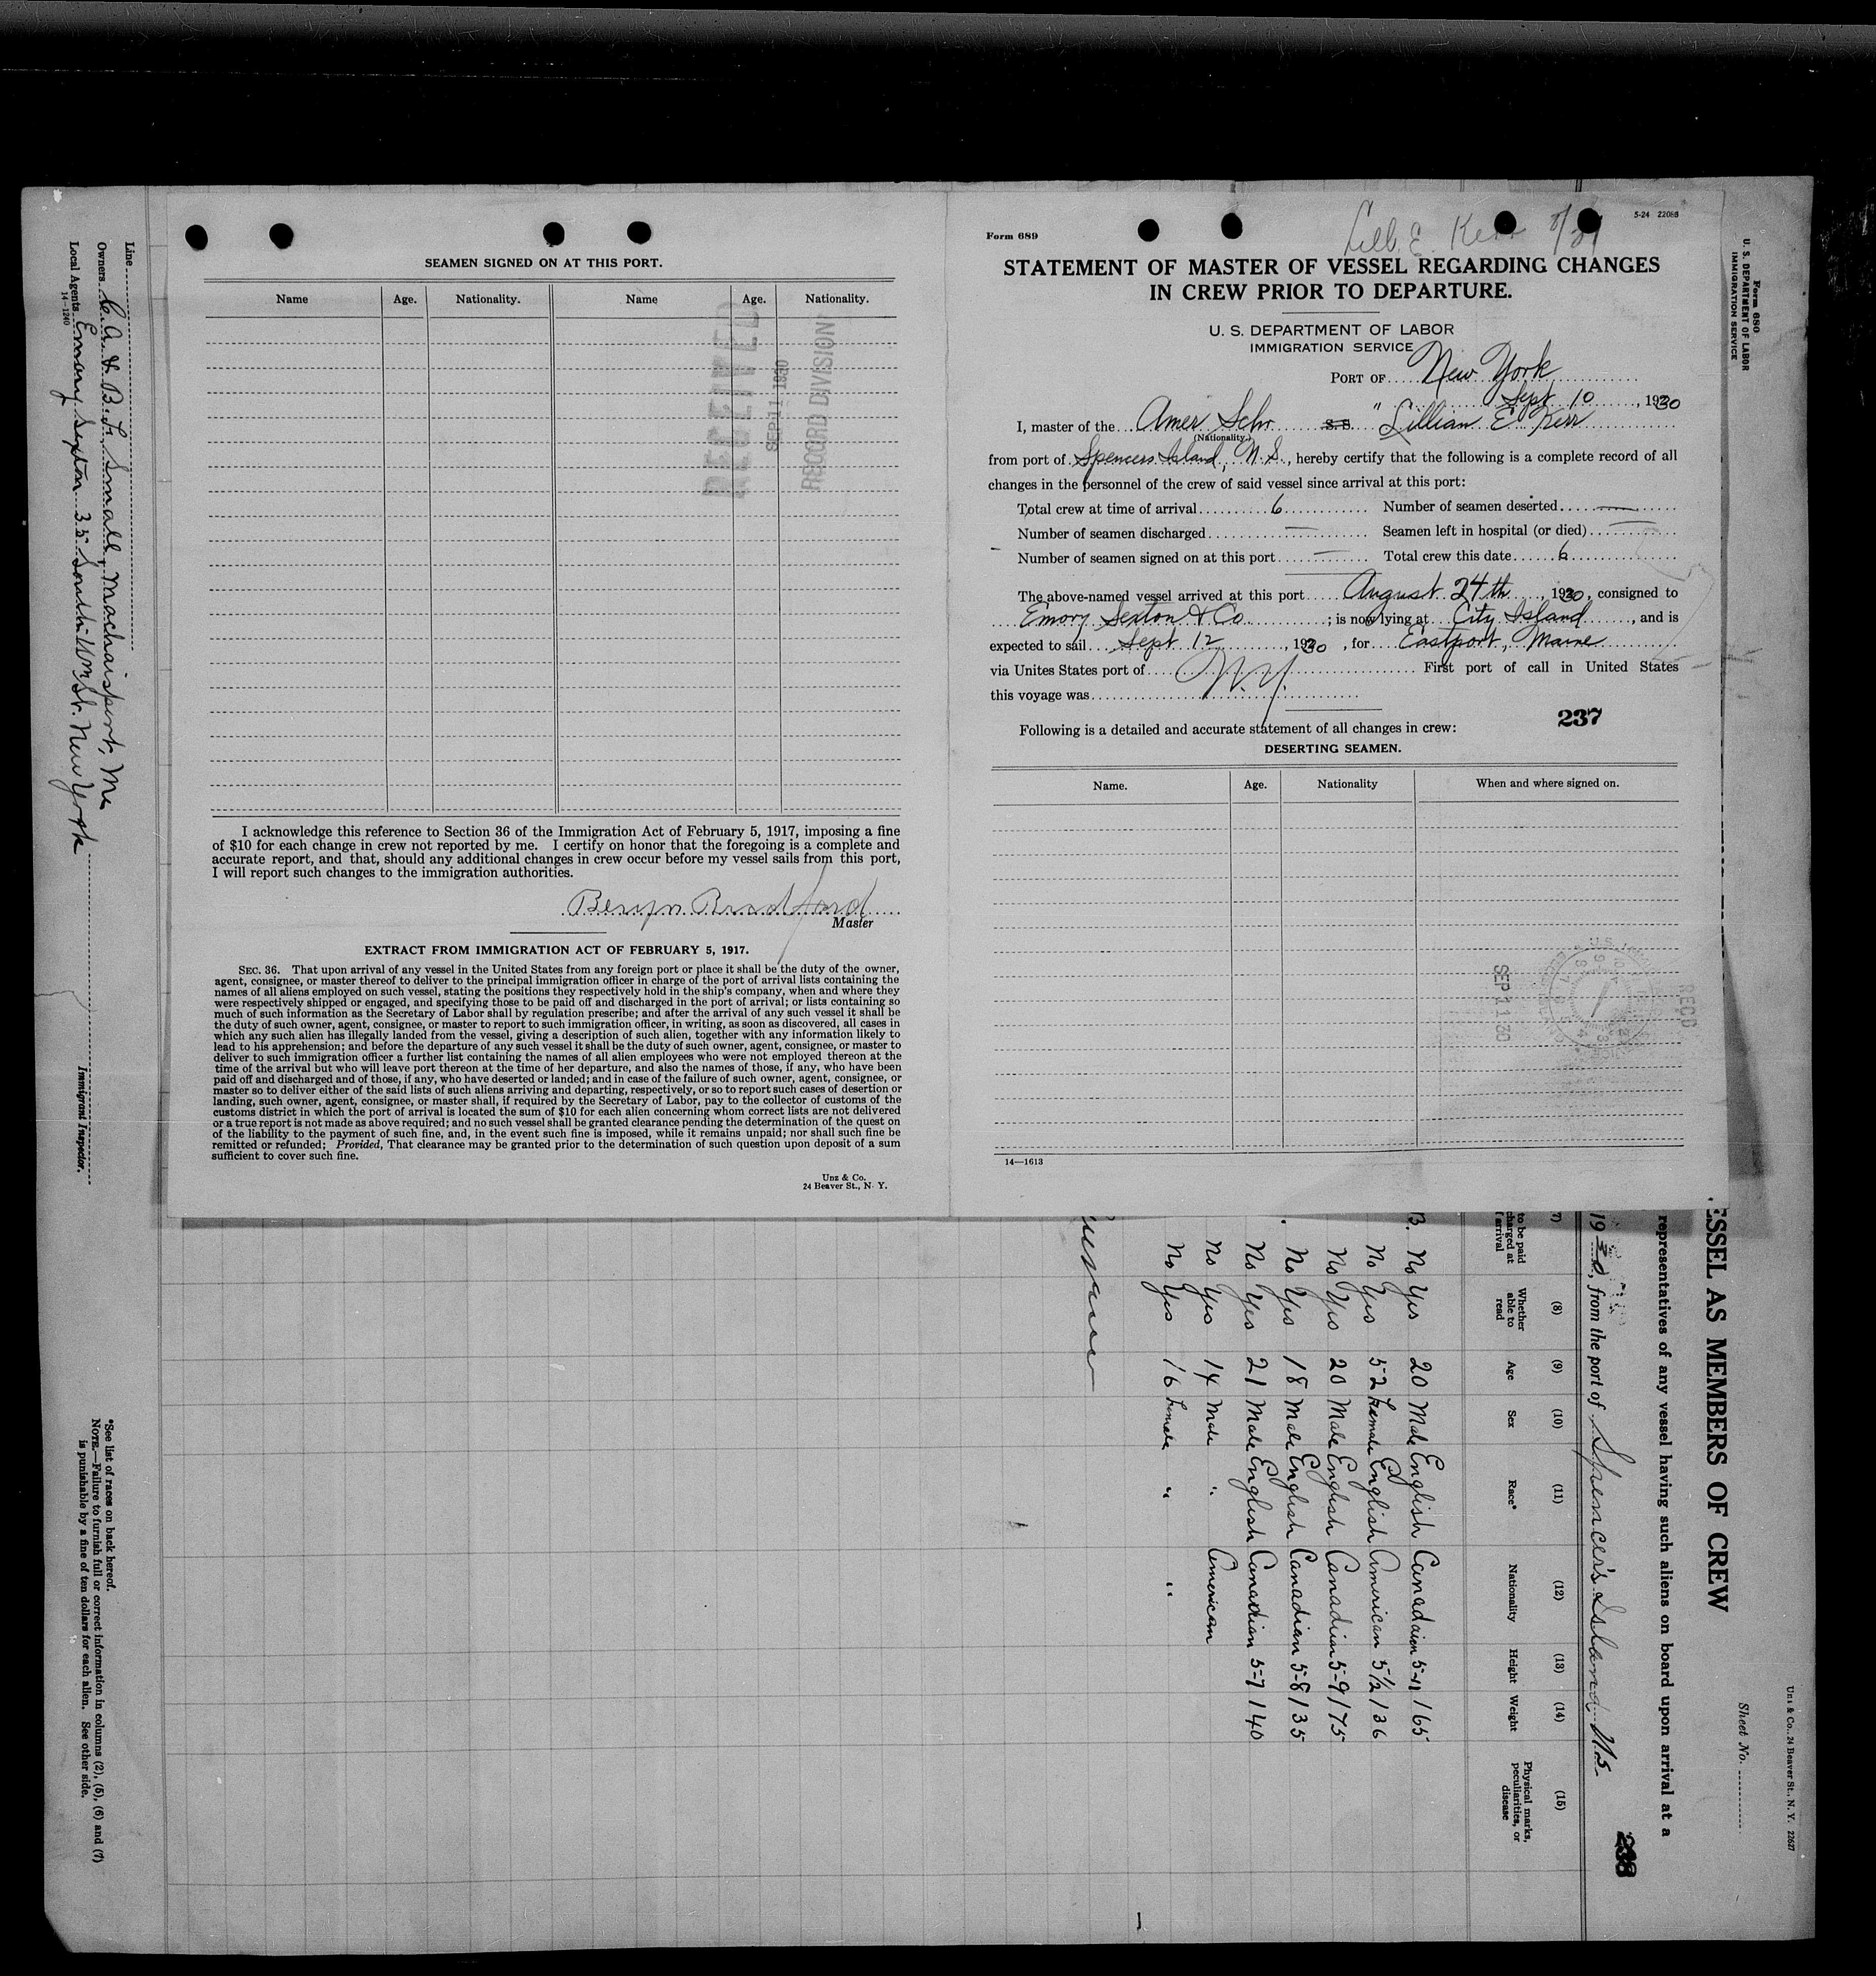 SEAMEN SIGNED ON AT THIS PORT.
Name Age. Nationality. Name Age. Nationality.
RECEIVED
SEP 11 1930
RECORD DIVISION
I acknowledge this reference to Section 36 of the Immigration Act of February 5, 1917, imposing a fine
of $10 for each change in crew not reported by me. I certify on honor that the foregoing is a complete and
accurate report, and that, should any additional changes in crew occur before my vessel sails from this port,
I will report such changes to the immigration authorities.
Bradford
Master
EXTRACT FROM IMMIGRATION ACT OF FEBRUARY 5, 1917.
SEC. 36. That upon arrival of any vessel in the United States from any foreign port or place it shall be the duty of the owner,
agent, consignee, or master thereof to deliver to the principal immigration officer in charge of the port of arrival lists containing the
names of all aliens employed on such vessel, stating the positions they respectively hold in the ship's company, when and where they
were respectively shipped or engaged, and specifying those to be paid off and discharged in the port of arrival; or lists containing so
much of such information as the Secretary of Labor shall by regulation prescribe; and after the arrival of any such vessel it shall be
the duty of such owner, agent, consignee, or master to report to such immigration officer, in writing, as soon as discovered, all cases in
which any such alien has illegally landed from the vessel, giving a description of such alien, together with any information likely to
lead to his apprehension; and before the departure of any such vessel it shall be the duty of such owner, agent, consignee, or master to
deliver to such immigration officer a further list containing the names of all alien employees who were not employed thereon at the
time of the arrival but who will leave port thereon at the time of her departure, and also the names of those, if any, who have been
paid off and discharged and of those, if any, who have deserted or landed; and in case of the failure of such owner, agent, consignee, or
master so to deliver either of the said lists of such aliens arriving and departing, respectively, or so to report such cases of desertion or
landing, such owner, agent, consignee, or master shall, if required by the Secretary of Labor, pay to the collector of customs of the
customs district in which the port of arrival is located the sum of $10 for each alien concerning whom correct lists are not delivered
or a true report is not made as above required; and no such vessel shall be granted clearance pending the determination of the quest on
of the liability to the payment of such fine, and, in the event such fine is imposed, while it remains unpaid; nor shall such fine be
remitted or refunded; Provided, That clearance may be granted prior to the determination of such question upon deposit of a sum
sufficient to cover such fine.
Unz & Co.
24 Beaver St., N. Y.
Form 689
Lill. E. Kerr
5-24 22085
STATEMENT OF MASTER OF VESSEL REGARDING CHANGES
IN CREW PRIOR TO DEPARTURE.
U. S. DEPARTMENT OF LABOR
IMMIGRATION SERVICE
PORT OF New York
Sept 10, 1930
I, master of the Amer Schr S.S "Lillian E Kerr
(Nationality)
from port of Spencers Island, N.S., hereby certify that the following is a complete record of all
changes in the personnel of the crew of said vessel since arrival at this port:
Total crew at time of arrival 6 Number of seamen deserted —
Number of seamen discharged — Seamen left in hospital (or died) —
Number of seamen signed on at this port — Total crew this date 6
The above-named vessel arrived at this port August 24th, 1930, consigned to
Emory Sexton & Co; is now lying at City Island, and is
expected to sail Sept 12, 1930, for Eastport, Maine
via Unites States port of N.Y. First port of call in United States
this voyage was
237
Following is a detailed and accurate statement of all changes in crew:
DESERTING SEAMEN.
Name. Age. Nationality When and where signed on.
SEP 11 30
REC'D
14—1613
Line
Owners C. A. & B. L. Small, Machiasport, Me
Local Agents Emory Sexton 35 South William St. New York
14-1240
Immigrant Inspector.
*See list of races on back hereof.
NOTE.—Failure to furnish full or correct information in columns (2), (5), (6) and (7)
is punishable by a fine of ten dollars for each alien. See other side.
Form 680
U. S. DEPARTMENT OF LABOR
IMMIGRATION SERVICE
Unz & Co., 24 Beaver St., N. Y. 22627
Sheet No.
ESSEL AS MEMBERS OF CREW
representatives of any vessel having such aliens on board upon arrival at a
1930, from the port of Spencer's Island N.S.
238
7) (8) (9) (10) (11) (12) (13) (14) (15)
to be paid
charged at
arrival
Whether
able to
read
Age Sex Race* Nationality Height Weight
Physical marks,
peculiarities, or
disease
No Yes 20 Male English Canadian 5-11 165
No Yes 52 Female English American 5½ 136
No Yes 20 Male English Canadian 5-9 175
No Yes 18 Male English Canadian 5-8 135
No Yes 21 Male English Canadian 5-7 140
No Yes 14 Male " American
No Yes 16 Female " "